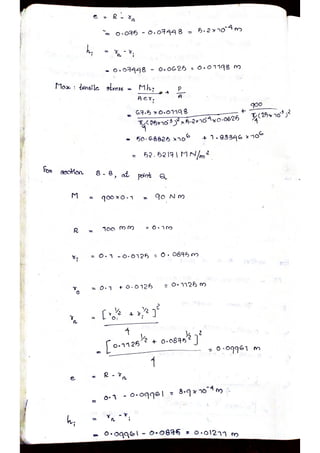 e = R - rₙ
= 0.075 - 0.07448 = 5.2×10⁻⁴ m
hᵢ = rₙ - rᵢ
= 0.07448 - 0.0625 = 0.01198 m
Max: tensile stress = Mhᵢ / Aerᵢ + P/A
= 67.5 × 0.01198 / π/4 (25×10⁻³)² × 5.2×10⁻⁴ × 0.0625 + 900 / π/4 (25×10⁻³)²
= 50.68825 × 10⁶ + 1.83346 × 10⁶
= 52.52171 MN/m²
For section B-B, at point Q
M = 900×0.1 = 90 Nm
R = 100 mm = 0.1m
rᵢ = 0.1 - 0.0125 = 0.0875 m
r₀ = 0.1 + 0.0125 = 0.1125 m
rₙ = [r₀^½ + rᵢ^½]² / 4
= [0.1125^½ + 0.0875^½]² / 4 = 0.09961 m
e = R - rₙ
= 0.1 - 0.09961 = 3.9×10⁻⁴ m
hᵢ = rₙ - rᵢ
= 0.09961 - 0.0875 = 0.01211 m